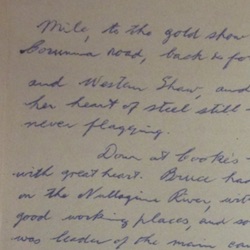 Mile, to the gold show
Corunna road, back to fo
and Western Shaw, and
her heart of steel still
never flagging.
Down at Cookes
with great heart. Bruce had
on the Nullagine River, wit
good working places, and so
was leader of the main cou